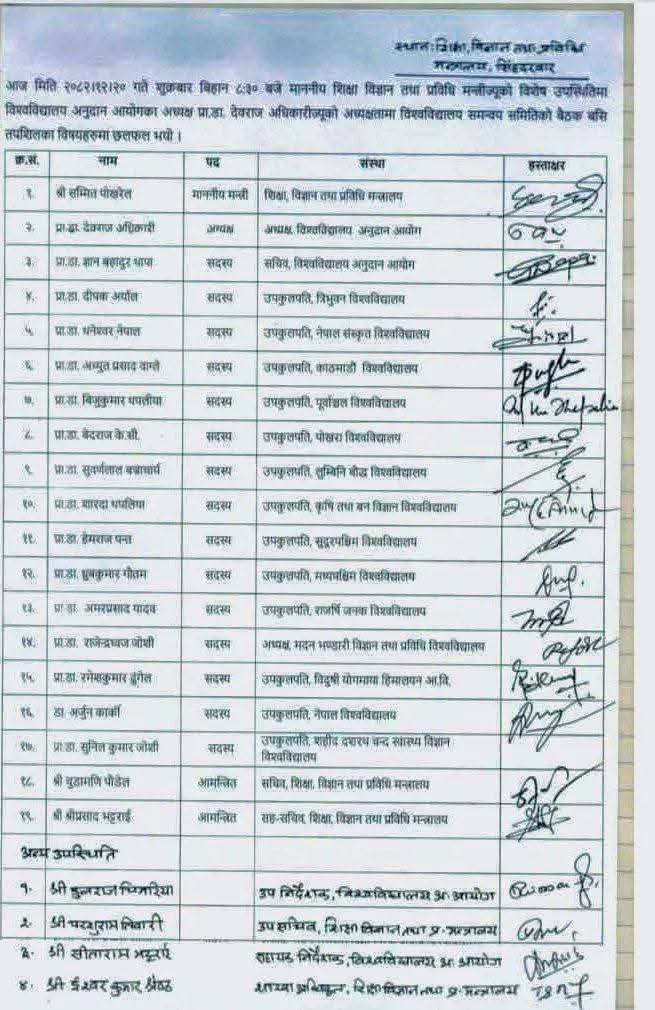 स्थानः शिक्षा, विज्ञान तथा प्रविधि
मन्त्रालय, सिंहदरबार
आज मिति २०८२।१२।२० गते शुक्रबार बिहान ८:३० बजे माननीय शिक्षा विज्ञान तथा प्रविधि मन्त्रीज्यूको विशेष उपस्थितिमा
विश्वविद्यालय अनुदान आयोगका अध्यक्ष प्रा.डा. देवराज अधिकारीज्यूको अध्यक्षतामा विश्वविद्यालय समन्वय समितिको बैठक बसि
तपशिलका विषयहरुमा छलफल भयो ।
क्र.सं. नाम पद संस्था हस्ताक्षर
१. श्री सस्मित पोखरेल माननीय मन्त्री शिक्षा, विज्ञान तथा प्रविधि मन्त्रालय
२. प्रा.डा. देवराज अधिकारी अध्यक्ष अध्यक्ष, विश्वविद्यालय अनुदान आयोग
३. प्रा.डा. ज्ञान बहादुर थापा सदस्य सचिव, विश्वविद्यालय अनुदान आयोग
४. प्रा.डा. दीपक अर्याल सदस्य उपकुलपति, त्रिभुवन विश्वविद्यालय
५. प्रा.डा. धनेश्वर नेपाल सदस्य उपकुलपति, नेपाल संस्कृत विश्वविद्यालय
६. प्रा.डा. अच्युत प्रसाद वाग्ले सदस्य उपकुलपति, काठमाडौं विश्वविद्यालय
७. प्रा.डा. बिजुकुमार थपलीया सदस्य उपकुलपति, पूर्वाञ्चल विश्वविद्यालय
८. प्रा.डा. बेदराज के.सी. सदस्य उपकुलपति, पोखरा विश्वविद्यालय
९. प्रा.डा. सुवर्णलाल बज्राचार्य सदस्य उपकुलपति, लुम्बिनि बौद्ध विश्वविद्यालय
१०. प्रा.डा. शारदा थपलिया सदस्य उपकुलपति, कृषि तथा बन विज्ञान विश्वविद्यालय
११. प्रा.डा. हेमराज पन्त सदस्य उपकुलपति, सुदूरपश्चिम विश्वविद्यालय
१२. प्रा.डा. ध्रुबकुमार गौतम सदस्य उपकुलपति, मध्यपश्चिम विश्वविद्यालय
१३. प्रा.डा. अमरप्रसाद यादव सदस्य उपकुलपति, राजर्षि जनक विश्वविद्यालय
१४. प्रा.डा. राजेन्द्रध्वज जोशी सदस्य अध्यक्ष, मदन भण्डारी विज्ञान तथा प्रविधि विश्वविद्यालय
१५. प्रा.डा. रमेशकुमार ढुंगेल सदस्य उपकुलपति, विदुषी योगमाया हिमालयन आ.वि.
१६. डा. अर्जुन कार्की सदस्य उपकुलपति, नेपाल विश्वविद्यालय
१७. प्रा.डा. सुनिल कुमार जोशी सदस्य उपकुलपति, शहीद दशरथ चन्द स्वास्थ्य विज्ञान
विश्वविद्यालय
१८. श्री चुडामणि पौडेल आमन्त्रित सचिव, शिक्षा, विज्ञान तथा प्रविधि मन्त्रालय
१९. श्री श्रीप्रसाद भट्टराई आमन्त्रित सह-सचिव, शिक्षा, विज्ञान तथा प्रविधि मन्त्रालय
अन्य उपस्थिति
१. श्री उप निर्देशक, विश्वविद्यालय अ. आयोग
२. श्री परशुराम तिवारी उप सचिव, शिक्षा विज्ञान तथा प्र. मन्त्रालय
३. श्री सीताराम भट्टराई सहायक निर्देशक, विश्वविद्यालय अ. आयोग
४. श्री ईश्वर कुमार श्रेष्ठ शाखा अधिकृत, शिक्षा विज्ञान तथा प्र. मन्त्रालय